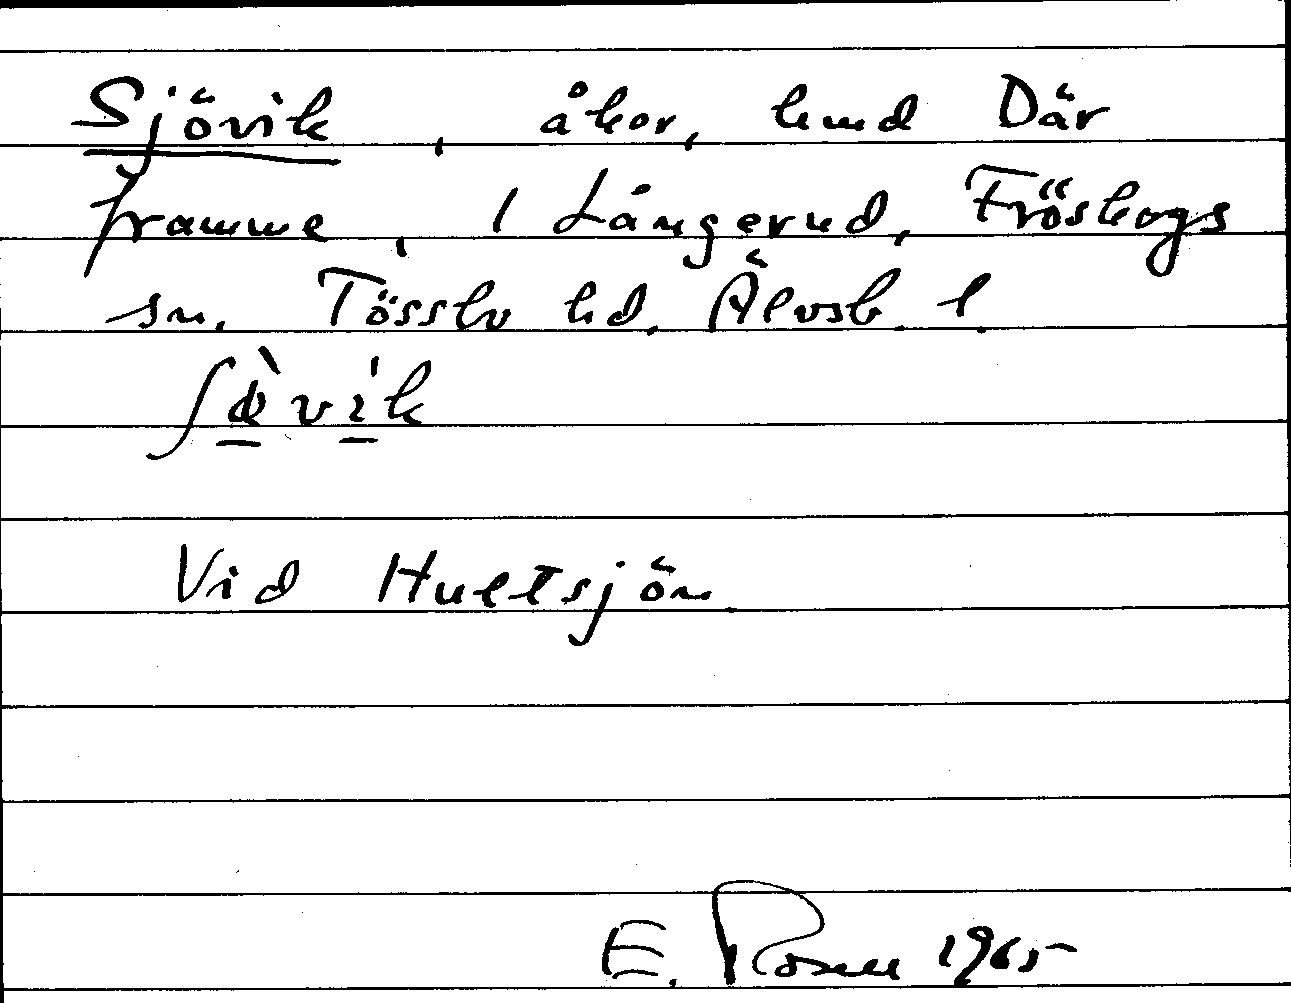 Sjövik, åker, hmd Där
framme, 1 Långerud, Fröskogs
sn. Tössbo hd. Älvsb. l.
Vid Hultsjön.
E. Rosell 1965